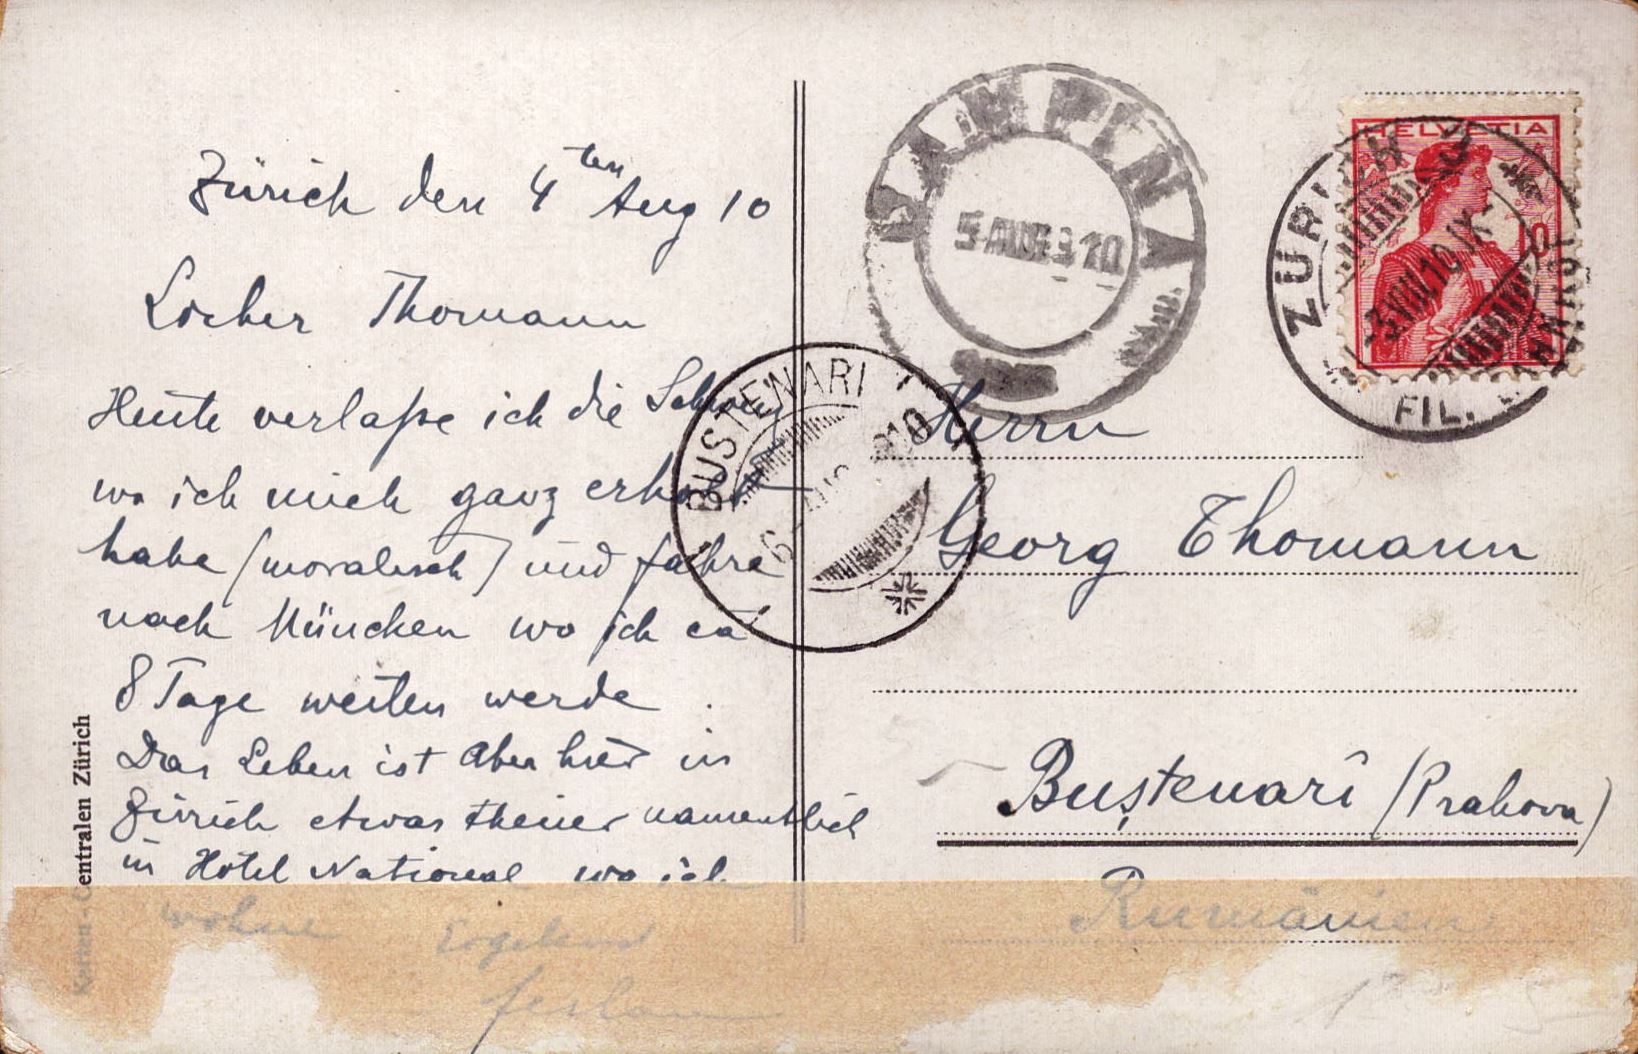 Zürich den 4ten Aug 10
Locher Thomann
Heute verlaße ich die Schweiz
wo ich mich ganz erholt
habe (moralisch) und fahre
nach München wo ich ca
8 Tage weilen werde.
Das Leben ist aber hier in
Zürich etwas theuer namentlich
in Hôtel National wo ich
wohne
Karten-Centralen Zürich
CAMPINA
5 AUG 910
BUSTENARI
6 AUG 910
HELVETIA
10
ZÜRICH
3.VIII.10.IX-
FIL.
Herrn
Georg Thomann
Buștenari (Prahova)
Rumänien